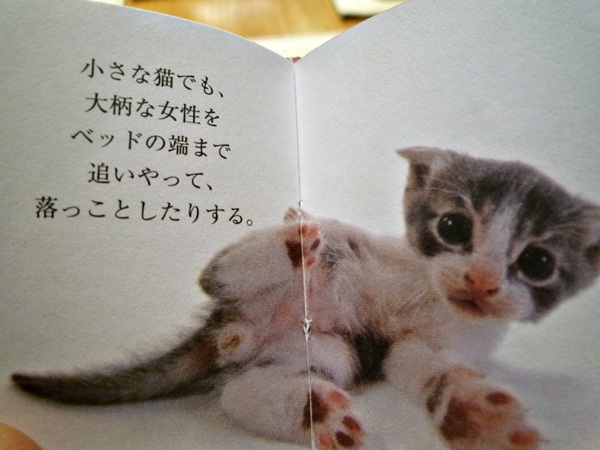 小さな猫でも、
大柄な女性を
ベッドの端まで
追いやって、
落っことしたりする。